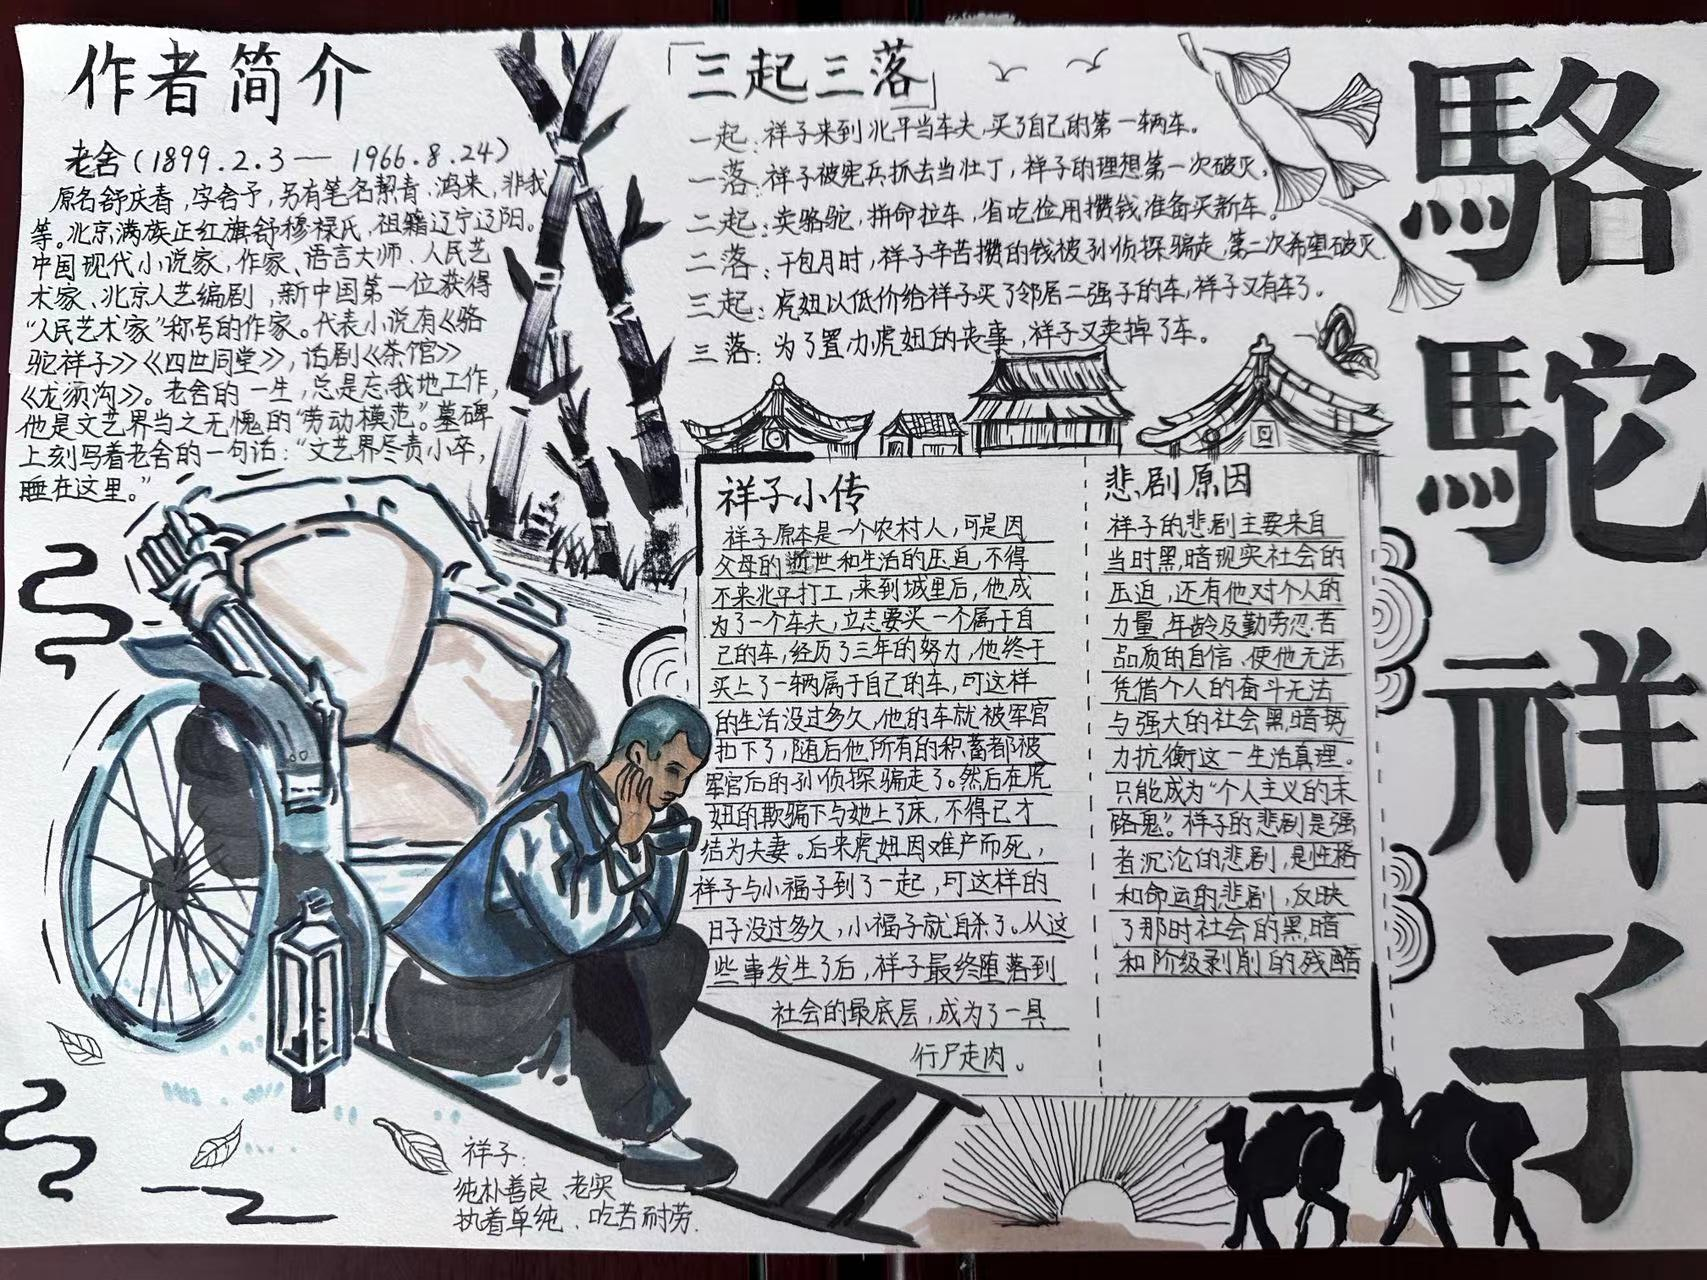 作者简介
老舍(1899.2.3— 1966.8.24)
原名舒庆春,字舍予,另有笔名絜青、鸿来、非我
等。北京满族正红旗舒穆禄氏,祖籍辽宁辽阳。
中国现代小说家,作家、语言大师、人民艺
术家、北京人艺编剧,新中国第一位获得
“人民艺术家”称号的作家。代表小说有《骆
驼祥子》《四世同堂》,话剧《茶馆》
《龙须沟》。老舍的一生,总是忘我地工作,
他是文艺界当之无愧的“劳动模范”。墓碑
上刻写着老舍的一句话:“文艺界尽责小卒,
睡在这里。”
「三起三落」
一起:祥子来到北平当车夫,买了自己的第一辆车。
一落:祥子被宪兵抓去当壮丁,祥子的理想第一次破灭。
二起:卖骆驼,拼命拉车,省吃俭用攒钱准备买新车。
二落:干包月时,祥子辛苦攒的钱被孙侦探骗走,第二次希望破灭.
三起:虎妞以低价给祥子买了邻居二强子的车,祥子又有车了。
三落:为了置办虎妞的丧事,祥子又卖掉了车。
駱駝祥子
祥子小传
祥子原本是一个农村人,可是因
父母的逝世和生活的压迫,不得
不来北平打工,来到城里后,他成
为了一个车夫,立志要买一个属于自
己的车,经历了三年的努力,他终于
买上了一辆属于自己的车,可这样
的生活没过多久,他的车就被军官
扣下了,随后他所有的积蓄都被
军官后的孙侦探骗走了。然后在虎
妞的欺骗下与她上了床,不得已才
结为夫妻。后来虎妞因难产而死,
祥子与小福子到了一起,可这样的
日子没过多久,小福子就自杀了。从这
些事发生了后,祥子最终堕落到
社会的最底层,成为了一具
行尸走肉。
悲剧原因
祥子的悲剧主要来自
当时黑暗现实社会的
压迫,还有他对个人的
力量、年龄及勤劳忍苦
品质的自信、使他无法
凭借个人的奋斗无法
与强大的社会黑暗势
力抗衡这一生活真理。
只能成为“个人主义的末
路鬼”。祥子的悲剧是强
者沉沦的悲剧,是性格
和命运的悲剧,反映
了那时社会的黑暗
和阶级剥削的残酷
祥子:
纯朴善良、老实
执着单纯、吃苦耐劳.